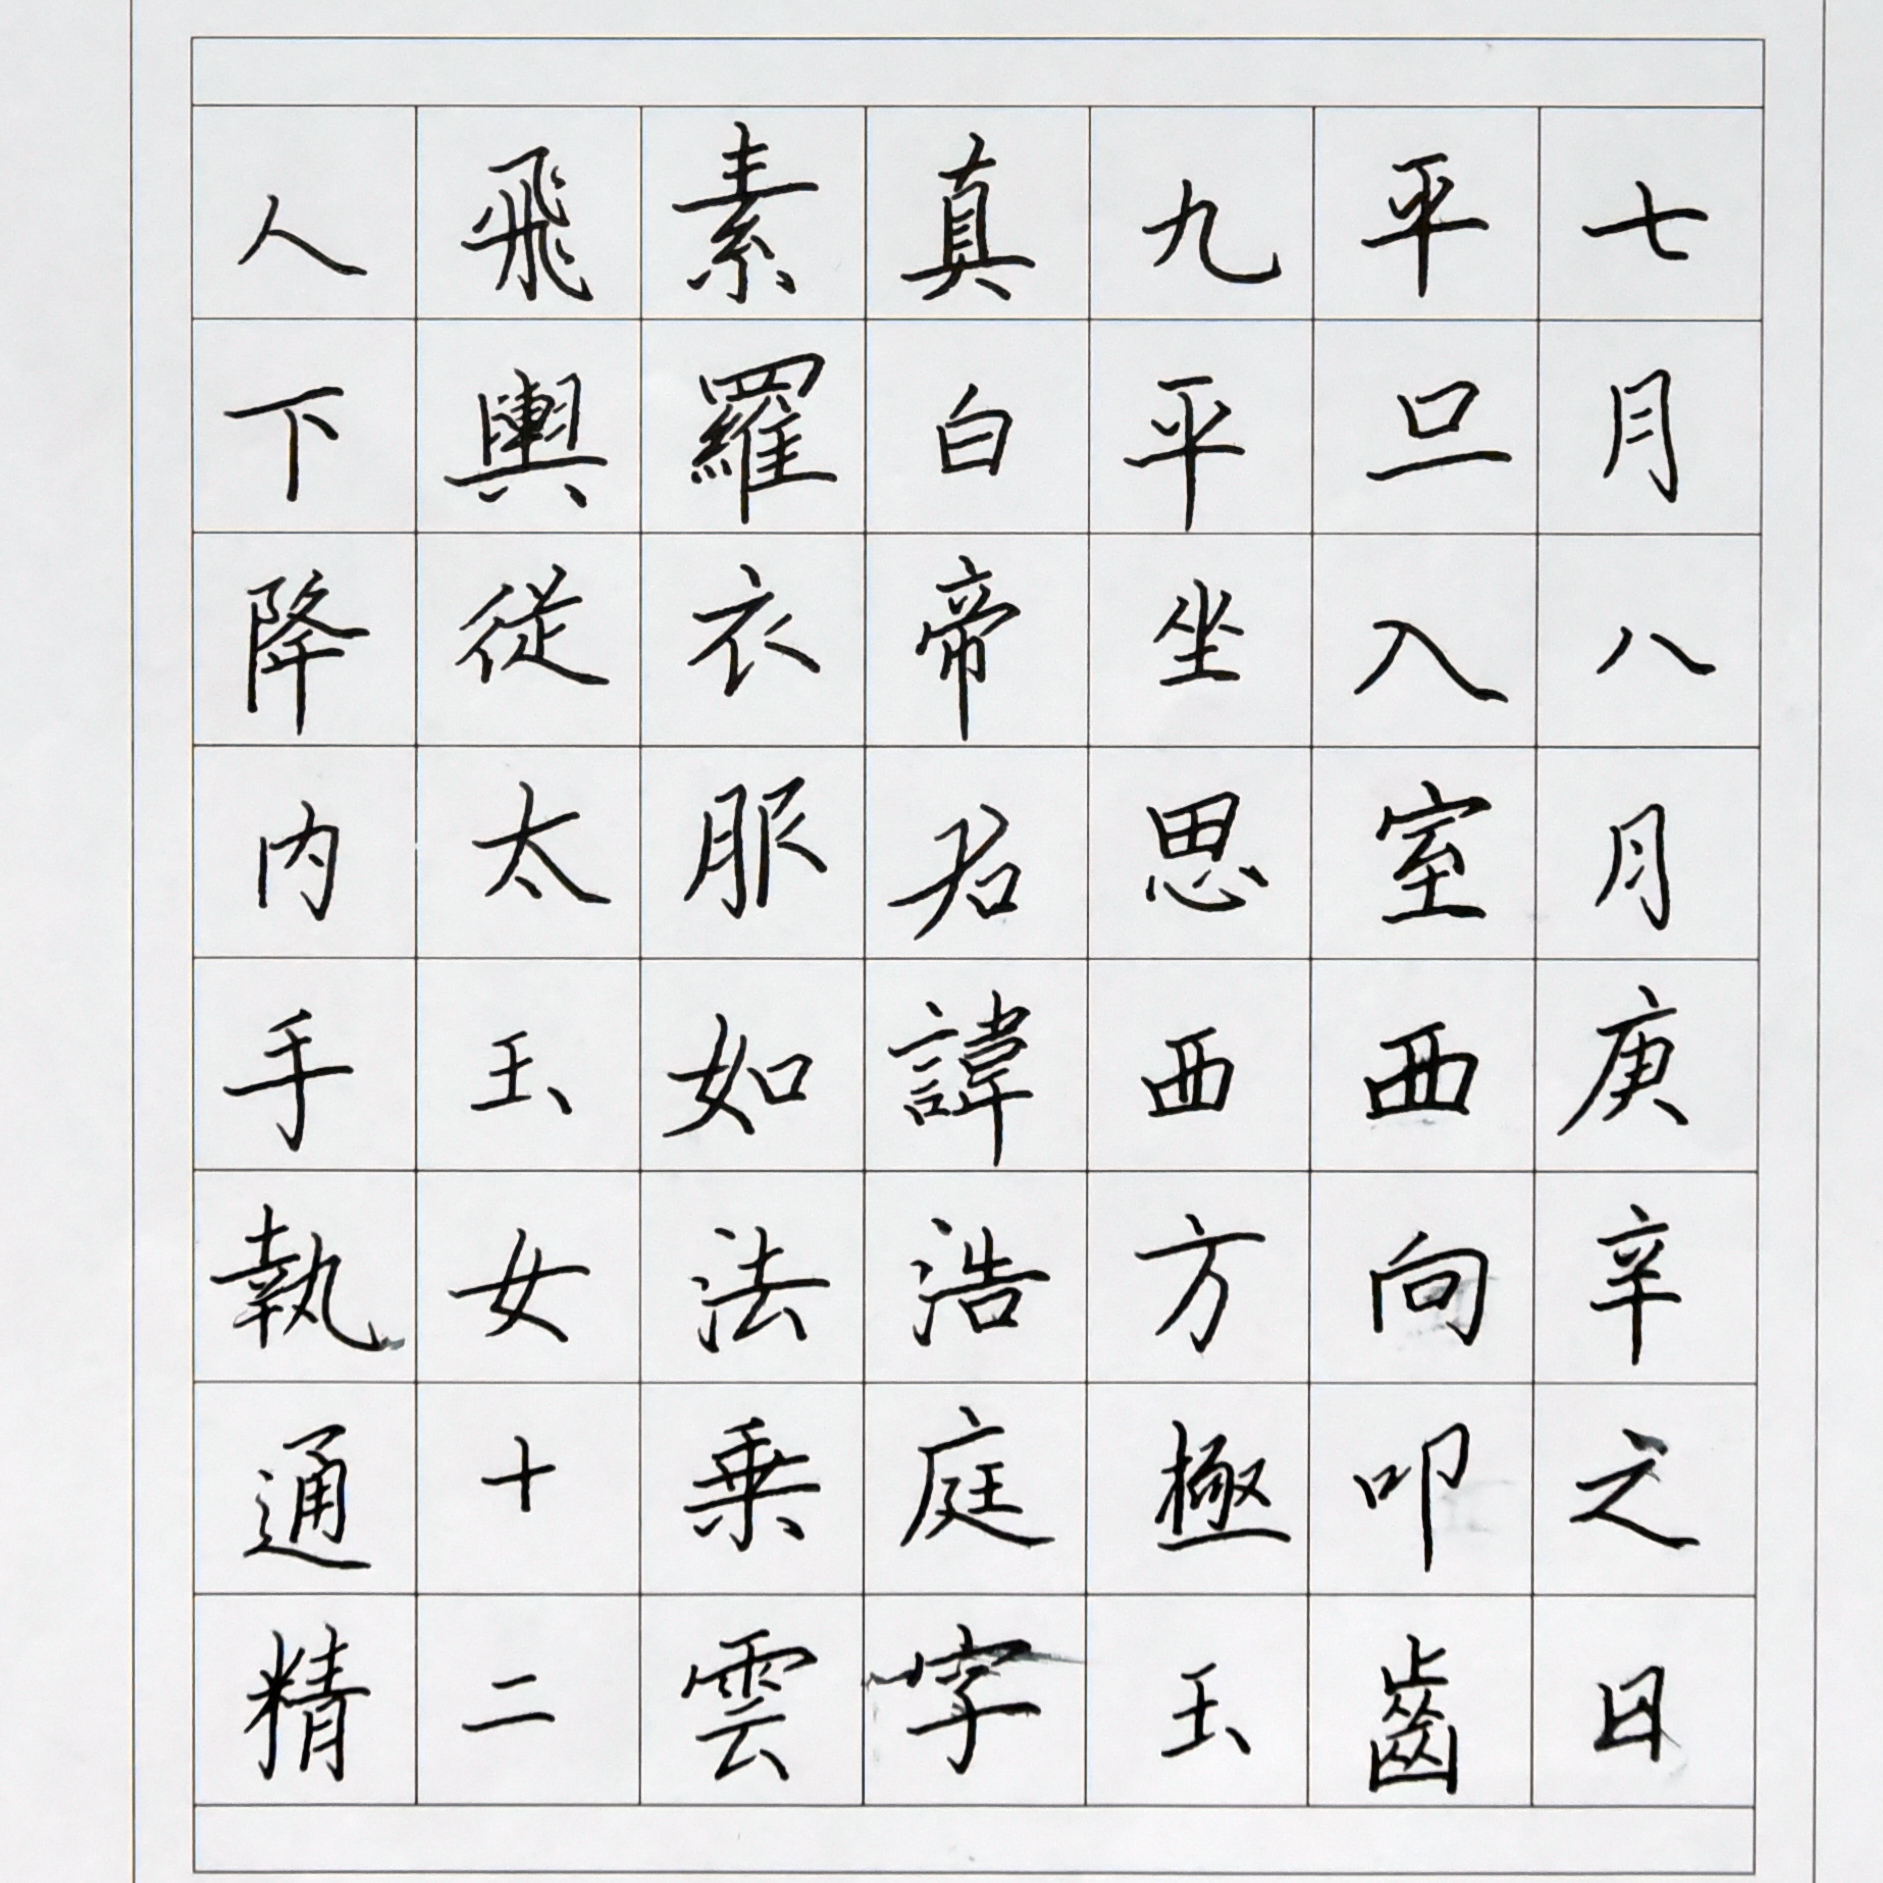 七月八月庚辛之日
平旦入室西向叩齒
九平坐思西方極玉
真白帝君諱浩庭字
素羅衣服如法乗雲
飛輿從太玉女十二
人下降內手執通精